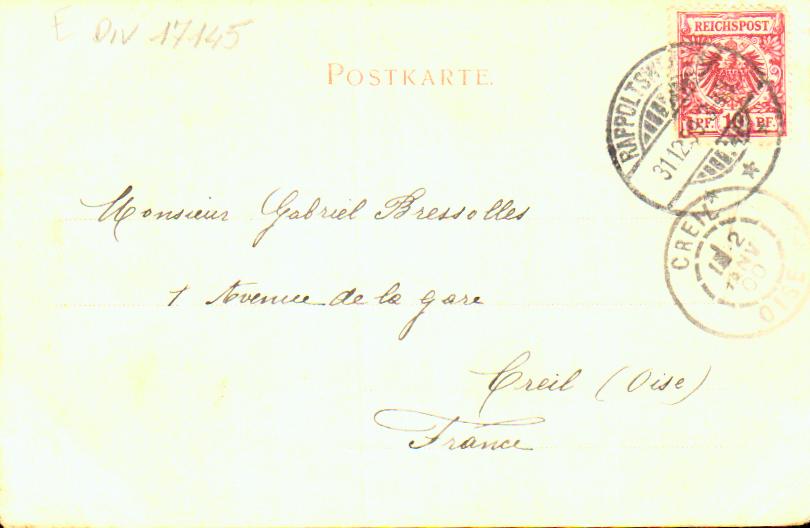 E DIV 17145
POSTKARTE.
REICHSPOST
PF. 10 PF.
31.12.
CREIL
2
JANV
00
OISE
Monsieur Gabriel Bressolles
1 Avenue de la gare
Creil (Oise)
France